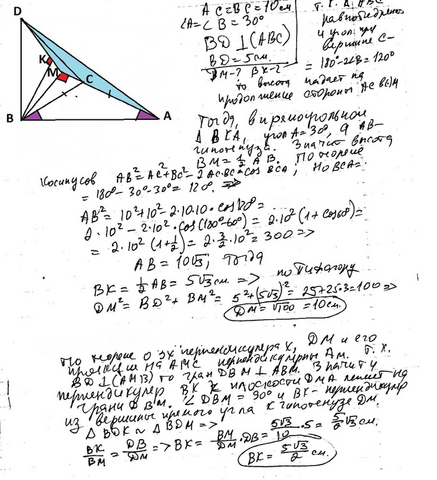 D
K
M
C
B
A
AC=BC=10см
∠A=∠B=30°
BD⊥(ABC)
BD=5см.
DM-? BK-?
Т.к. ΔABC
равнобедрен
и угол при
вершине C-
=180°-2∠B=120°
то высота падает на
продолжение стороны AC BM
Тогда, в прямоугольном
ΔBMA, угол A=30°, а AB-
гипотенуза. Значит высота
BM=½AB. По теореме
Косинусов AB²=AC²+BC²-2AC·BC·cos BCA, Но BCA=
=180-30°-30°=120°. =>
AB²=10²+10²-2·10·10·cos120=
2·10²-2·10²·cos(180°-60°)=2·10²(1+cos60)=
=2·10²(1+½)=2·3/2·10²=300=>
AB=10√3, Тогда
BK=½AB=5√3см=> по Пифагору
DM²=BD²+BM²=5²+(5√3)²=25+25·3=100=>
DM=√100=10см.
По теореме о 3х перпендикулярах, DM и его
проекция на AMC перпендикулярны AM. Т.к.
BD⊥(AMB) то грань DBM⊥ABM. Значит
перпендикуляр BK к плоскости DMA лежит на
грани DBM. ∠DBM=90° и BK-перпендикуляр
из вершины прямого угла к гипотенузе DM.
ΔBDK∼ΔBDM=>
BK/BM=DB/DM=>BK=BM/DM·DB=5√3/10·5=5/2√3см
BK=5√3/2см.